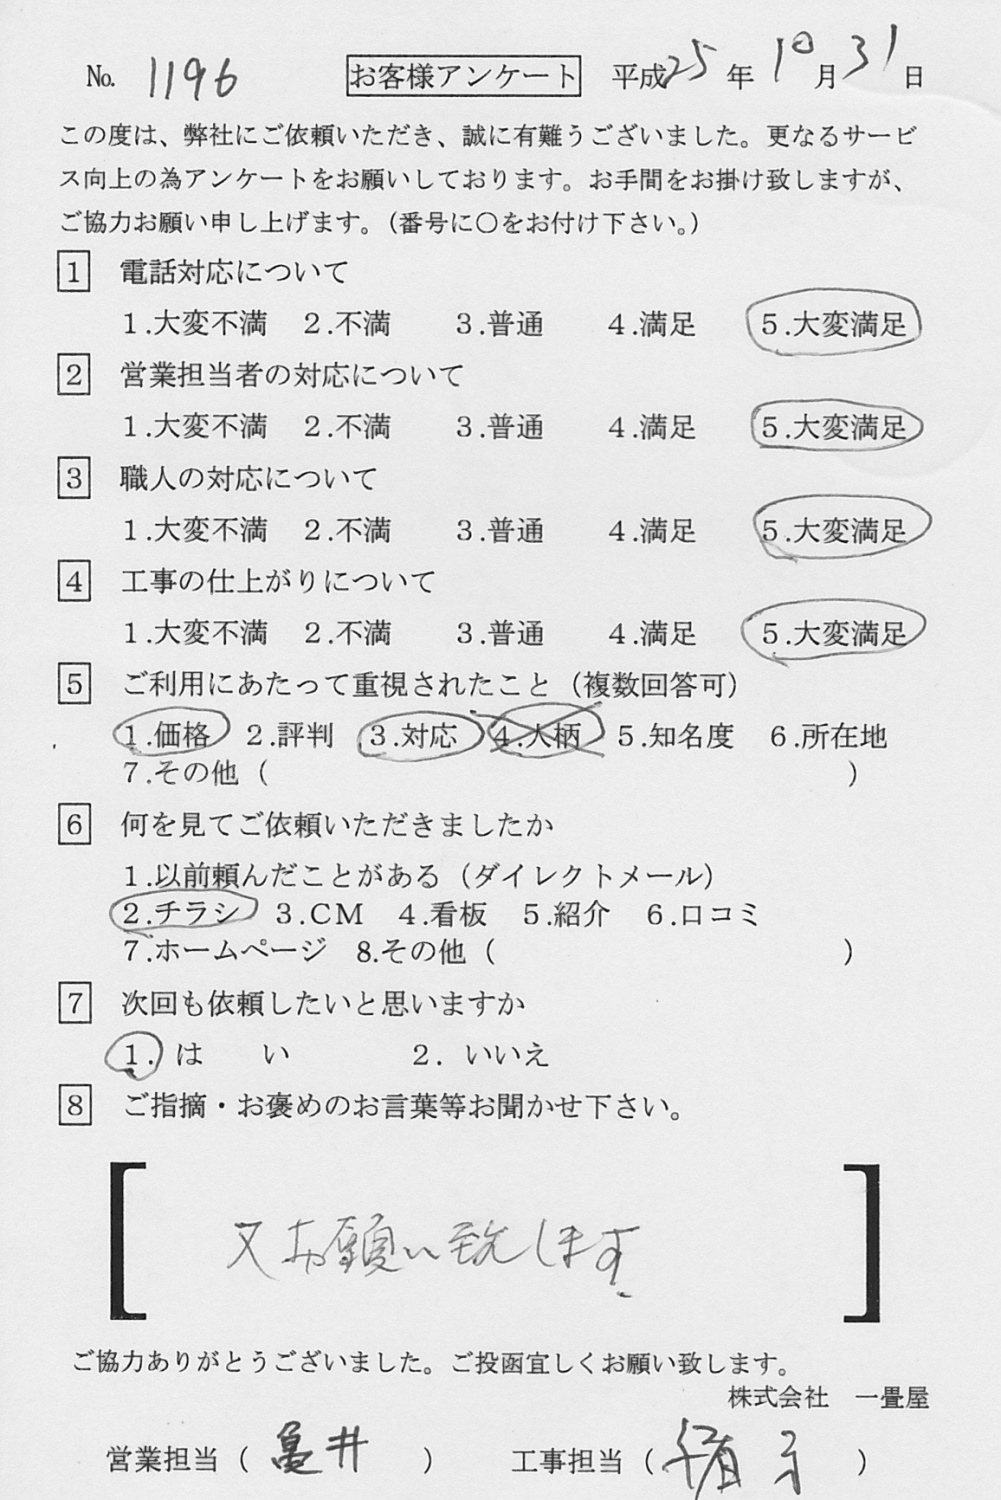 No. 1196 お客様アンケート 平成25年10月31日
この度は、弊社にご依頼いただき、誠に有難うございました。更なるサービ
ス向上の為アンケートをお願いしております。お手間をお掛け致しますが、
ご協力お願い申し上げます。(番号に〇をお付け下さい。)
1 電話対応について
1.大変不満 2.不満 3.普通 4.満足 5.大変満足
2 営業担当者の対応について
1.大変不満 2.不満 3.普通 4.満足 5.大変満足
3 職人の対応について
1.大変不満 2.不満 3.普通 4.満足 5.大変満足
4 工事の仕上がりについて
1.大変不満 2.不満 3.普通 4.満足 5.大変満足
5 ご利用にあたって重視されたこと(複数回答可)
1.価格 2.評判 3.対応 4.人柄 5.知名度 6.所在地
7.その他( )
6 何を見てご依頼いただきましたか
1.以前頼んだことがある(ダイレクトメール)
2.チラシ 3.CM 4.看板 5.紹介 6.口コミ
7.ホームページ 8.その他( )
7 次回も依頼したいと思いますか
1. は い 2. いいえ
8 ご指摘・お褒めのお言葉等お聞かせ下さい。
又お願い致します。
ご協力ありがとうございました。ご投函宜しくお願い致します。
株式会社 一畳屋
営業担当( 亀井 ) 工事担当( )